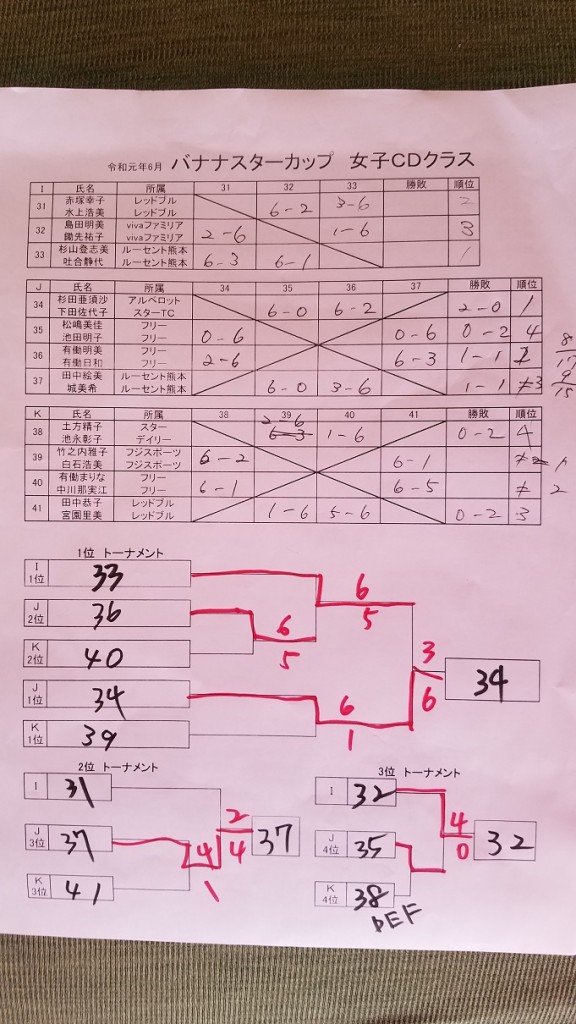 令和元年6月 バナナスターカップ 女子CDクラス
I 氏名 所属 31 32 33 勝敗 順位
31 赤塚幸子 レッドブル 6-2 3-6 2
水上浩美 レッドブル
32 島田明美 vivaファミリア 2-6 1-6 3
鋤先祐子 vivaファミリア
33 杉山登志美 ルーセント熊本 6-3 6-1 1
吐合静代 ルーセント熊本
J 氏名 所属 34 35 36 37 勝敗 順位
34 杉田亜須沙 アルペロット 6-0 6-2 2-0 1
下田佐代子 スターTC
35 松嶋美佳 フリー 0-6 0-6 0-2 4
池田明子 フリー
36 有働明美 フリー 2-6 6-3 1-1 2 8/17
有働日和 フリー
37 田中絵美 ルーセント熊本 6-0 3-6 1-1 3 9/15
城美希 ルーセント熊本
K 氏名 所属 38 39 40 41 勝敗 順位
2-6
38 土方精子 スター 6-3 1-6 0-2 4
池永彰子 デイリー
39 竹之内雅子 フジスポーツ 6-2 6-1 1
白石浩美 フジスポーツ
40 有働まりな フリー 6-1 6-5 2
中川那実江 フリー
41 田中恭子 レッドブル 1-6 5-6 0-2 3
宮園里美 レッドブル
1位 トーナメント
I 1位 33
6
5
J 2位 36
6
5
K 2位 40
3
6
34
J 1位 34
6
1
K 1位 39
2位 トーナメント
I 31
2
4
37
J 3位 37
4
1
K 3位 41
3位 トーナメント
I 32
4
0
32
J 4位 35
K 4位 38
DEF